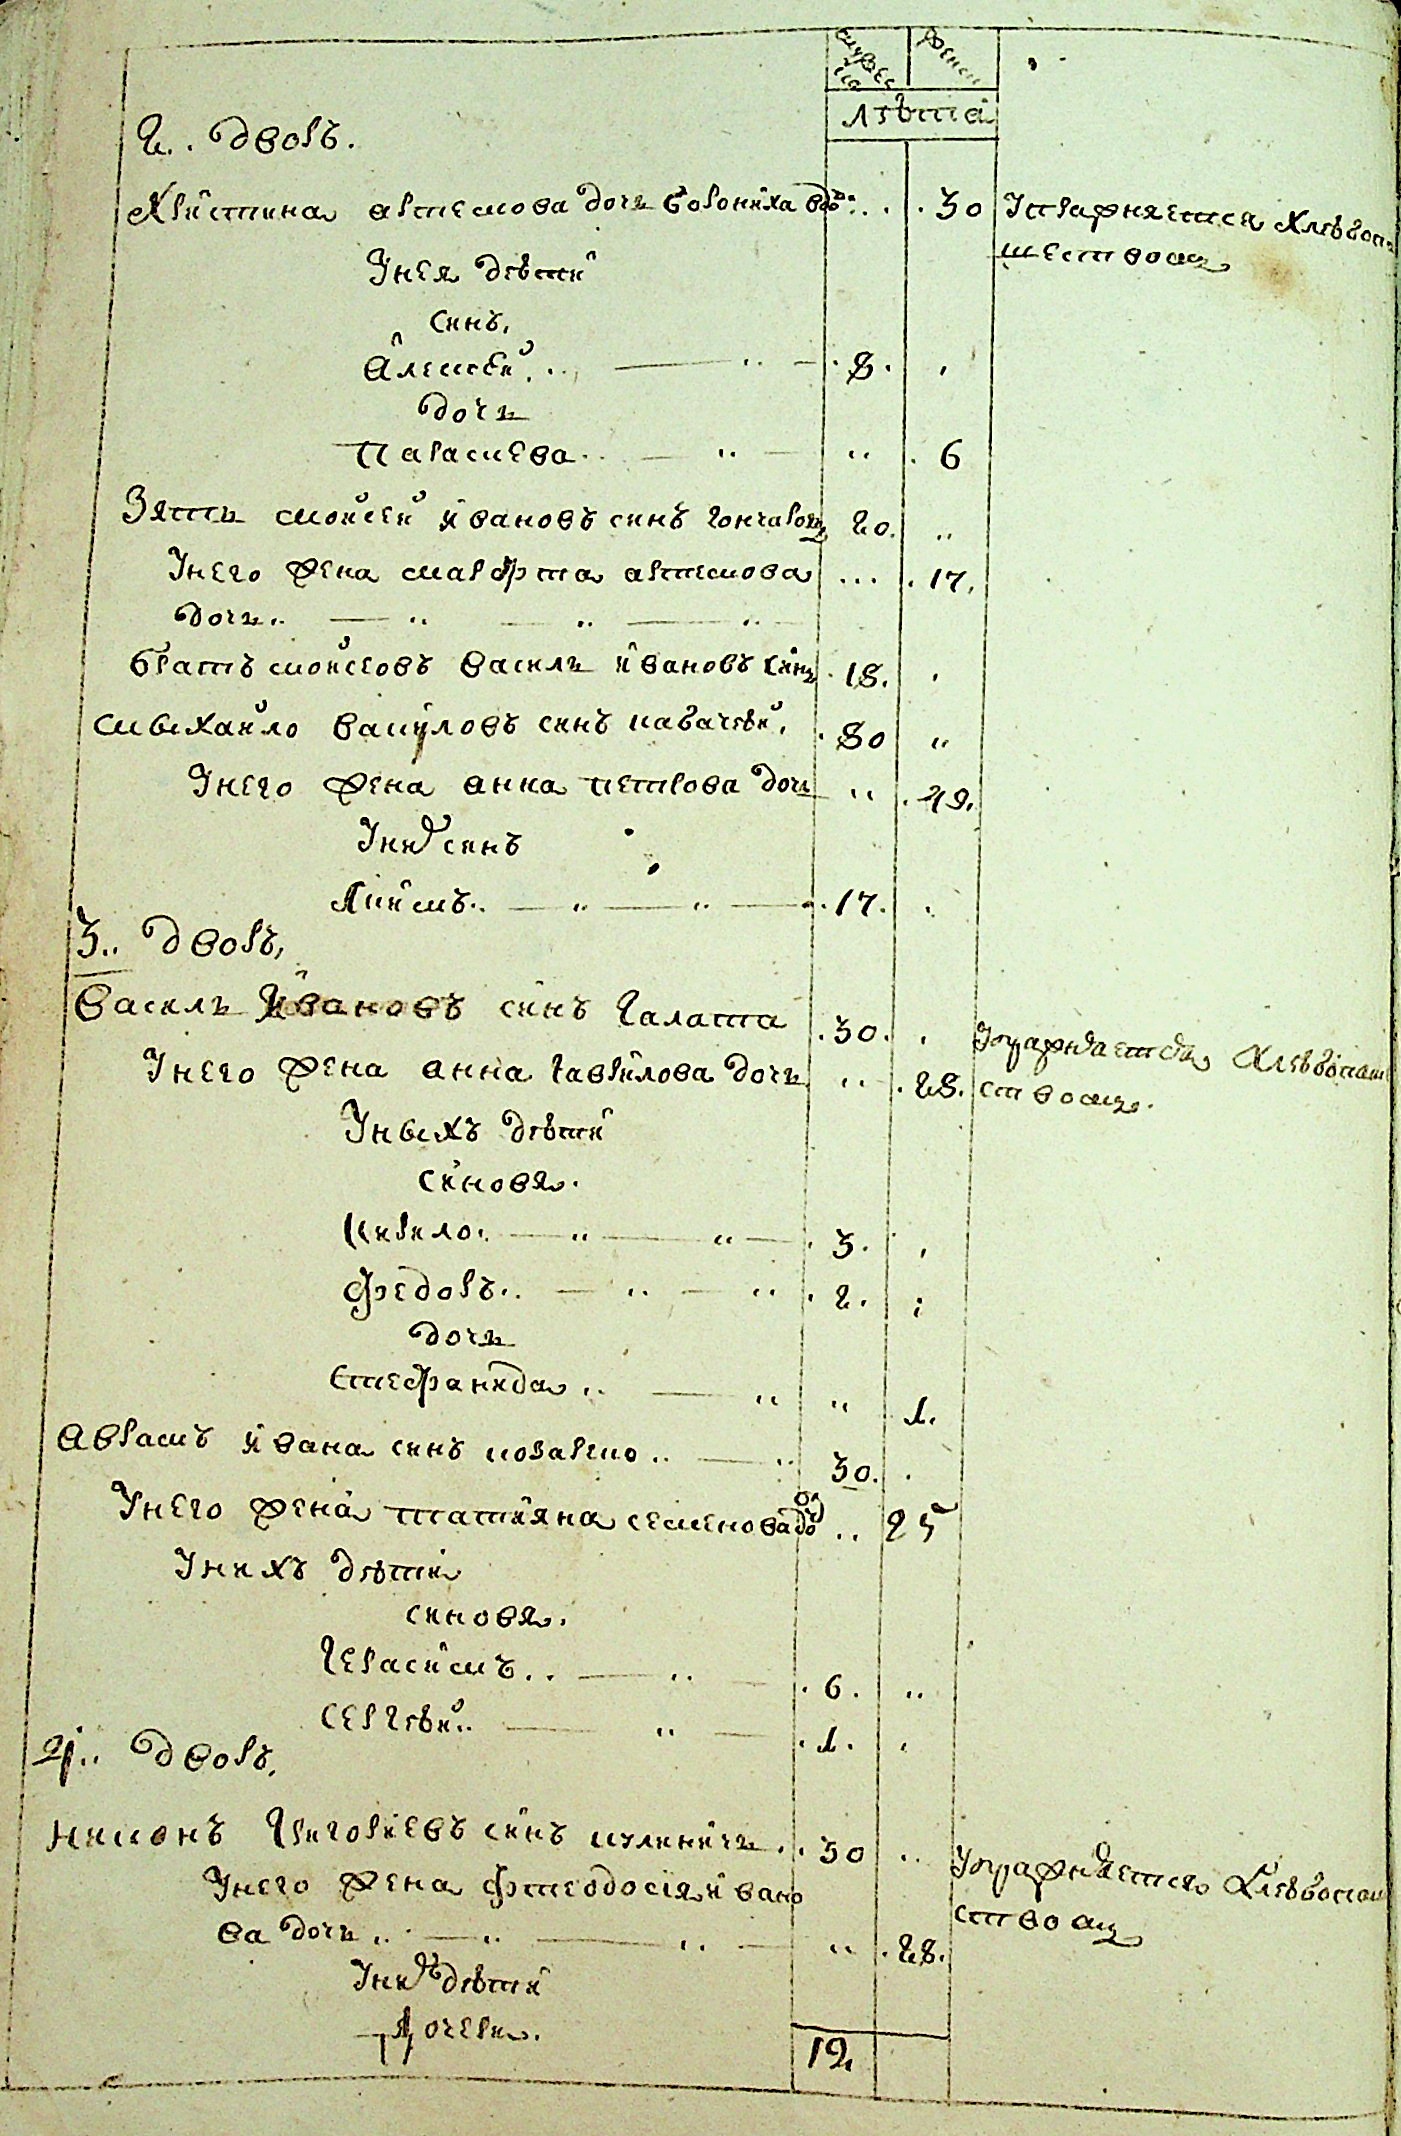 мужеска женска
лѣта
2. Дворъ.
Христина артемова дочь вдо: 30 Упражняется хлѣбопа
шеством
Унея дѣти
синъ.
Алексѣй. 8.
дочь
Параскева 6
Зять мойсей ивановъ синъ гончаровъ 20.
Унего жена марфта артемова 17.
дочь
братъ мойсеовъ василь ивановъ синъ 18.
михайло вакуловъ синъ 80
Унего жена анна петрова дочь 49.
Уних синъ
17.
3. Дворъ,
василь ивановъ синъ галата 30. Упражняется хлѣбопаш
ством.
Унего жена анна гаврилова дочь 28.
Унихъ дѣти
синовя.
Кирило 3.
Федоръ 2.
дочь
Стефанида 1.
аврамъ ивана синъ козаренко 30.
Унего жена татияна семенова доч 25
Унихъ дѣти
синовя.
Герасимъ 6.
Сергѣй 1.
4. Дворъ.
никонъ григориевъ синъ 30 Упражняется хлѣбопаш
ством
Унего жена фтеодосия ивано
ва дочь 28.
Унихъ дѣти
дочери.
12.